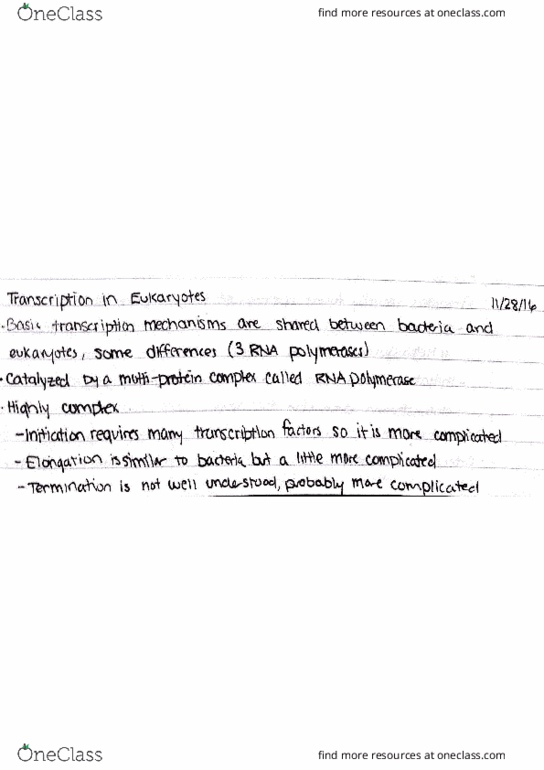 OneClass
find more resources at oneclass.com
Transcription in Eukaryotes
11/28/16
· Basic transcription mechanisms are shared between bacteria and
eukaryotes, some differences (3 RNA polymerases)
· Catalyzed by a multi-protein complex called RNA polymerase
· Highly complex
- Initiation requires many transcription factors so it is more complicated
- Elongation is similar to bacteria but a little more complicated
- Termination is not well understood, probably more complicated
OneClass
find more resources at oneclass.com